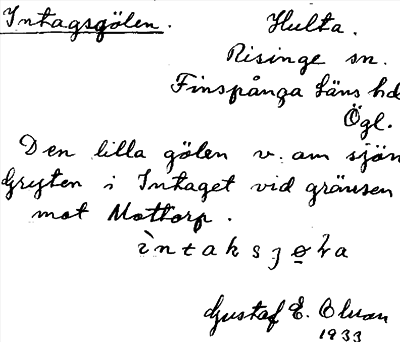 Intagsgölen. Hulta.
Risinge sn.
Finspånga läns hd
Ögl.
Den lilla gölen v. om sjön
Gryten i Intaget vid gränsen
mot Mottorp.
ìntaksjøLa
Gustaf E. Olsson
1933